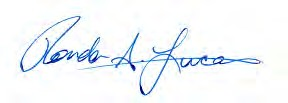 Ronda A. Lucas